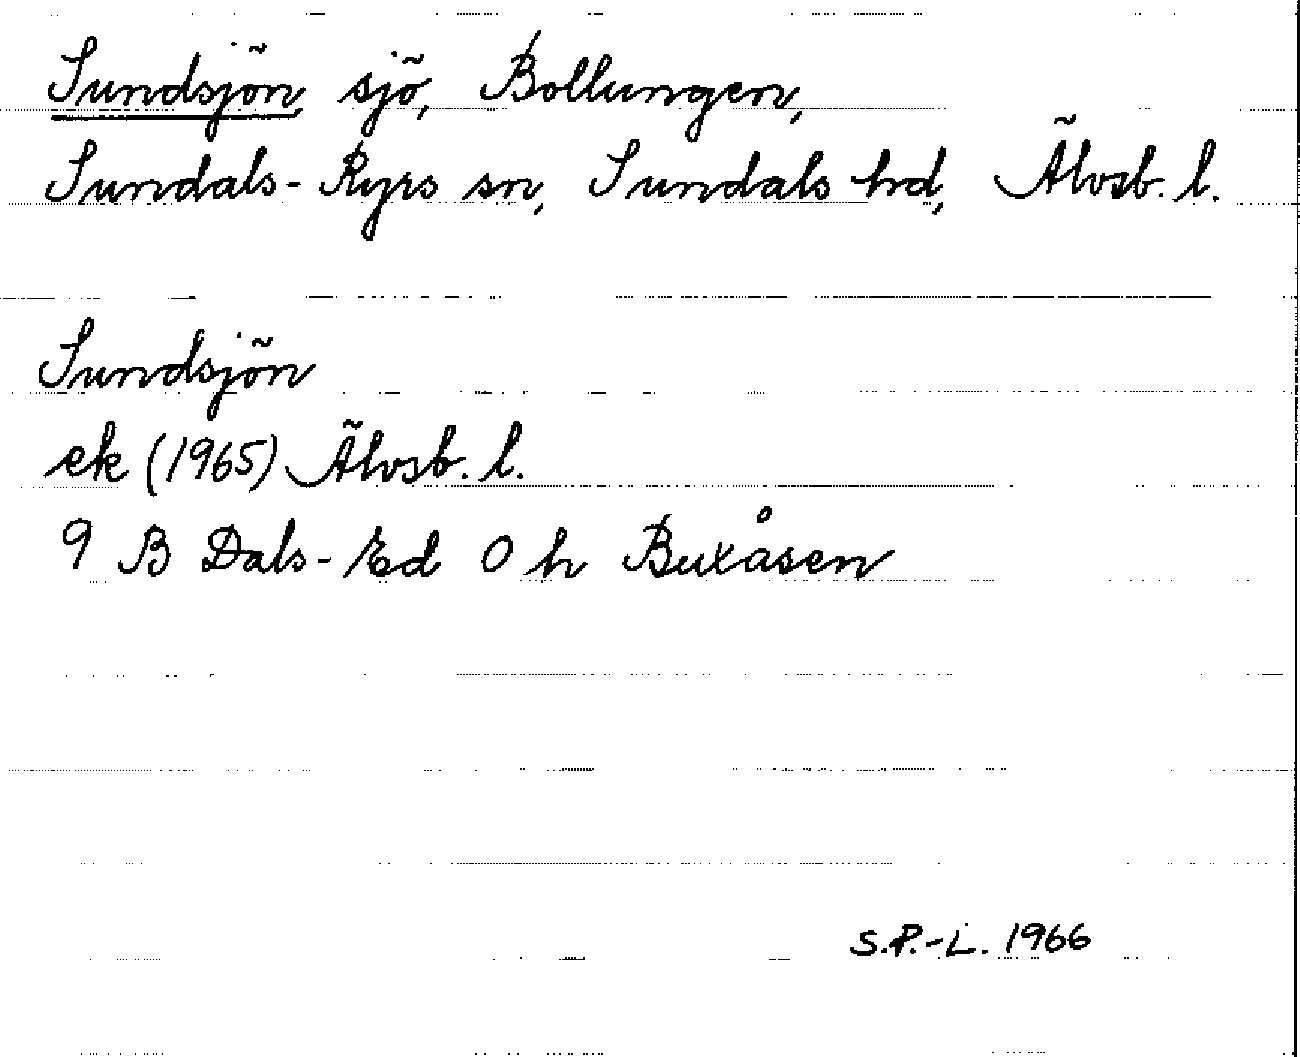 Sundsjön, sjö, Bollungen,
Sundals-Ryrs sn, Sundals hd, Älvsb. l.
Sundsjön
ek (1965) Älvsb. l.
9 B Dals-Ed 0 h Buxåsen
S.P.-L. 1966